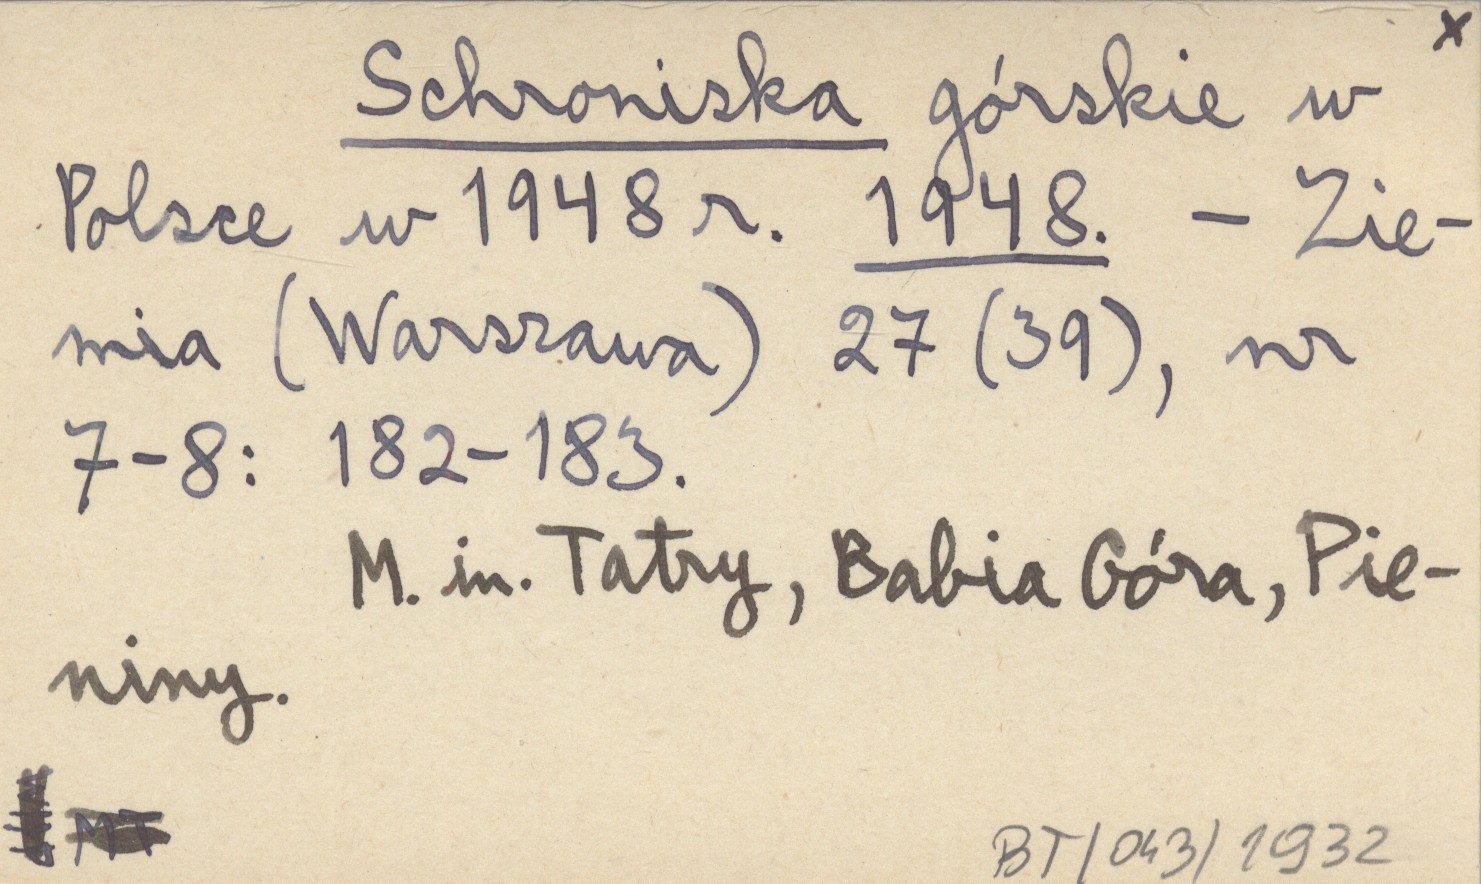 x
Schroniska górskie w
Polsce w 1948 r. 1948. – Zie-
mia (Warszawa) 27 (39), nr
7-8: 182-183.
M. in. Tatry, Babia Góra, Pie-
niny.
MT
BT/043/1932